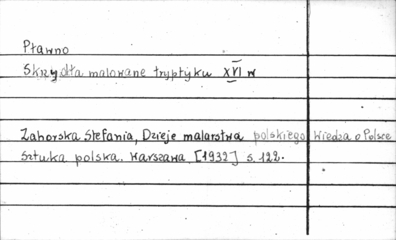 Pławno
Skrzydła malowane tryptyku XVI w
Zahorska Stefania, Dzieje malarstwa polskiego Wiedza o Polsce
Sztuka polska. Warszawa [1932] s. 122.